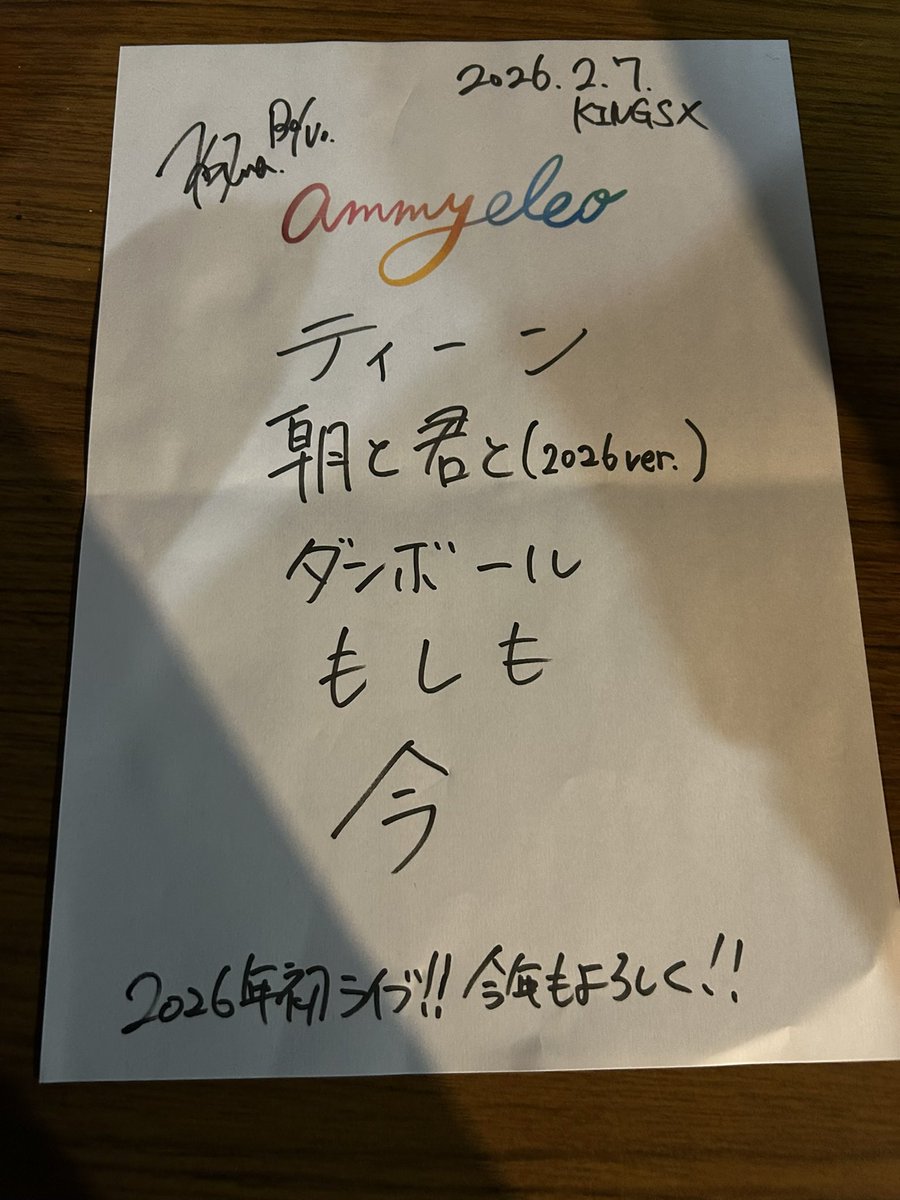 2026.2.7.
KINGSX
Ba/Vo.
ammyeleo
ティーン
朝と君と(2026ver.)
ダンボール
もしも
今
2026年初ライブ!! 今年もよろしく!!